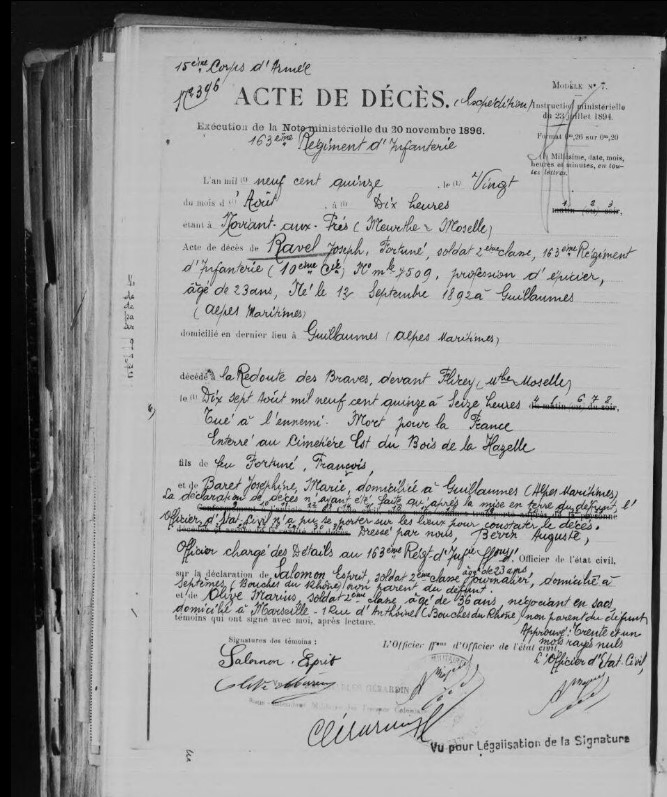 15ème Corps d'Armée
N° 2396
MODÈLE N° 7.
ACTE DE DÉCÈS. (Expédition)
Instruction ministérielle
du 23 juillet 1894.
Exécution de la Note ministérielle du 20 novembre 1896.
Format 0m,26 sur 0m,20
163ème Régiment d'Infanterie
(1) Millésime, date, mois,
heures et minutes, en tou-
tes lettres.
L'an mil (1) neuf cent quinze, le (1) Vingt
du mois d (1) Août, à (1) Dix heures
étant à Noviant-aux-Prés (Meurthe & Moselle)
Acte de décès de Ravel Joseph, Fortuné, soldat 2ème classe, 163ème Régiment
d'Infanterie (10ème Cie) No mle 7509, profession d'épicier,
âgé de 23 ans, Né le 12 Septembre 1892 à Guillaumes
(Alpes Maritimes)
domicilié en dernier lieu à Guillaumes (Alpes Maritimes)
décédé à la Redoute des Braves, devant Flirey (Mthe Moselle)
le (1) Dix sept août mil neuf cent quinze à Seize heures
Tué à l'ennemi. Mort pour la France
Enterré au Cimetière Est du Bois de la Hazelle
fils de feu Fortuné, François,
et de Baret Joséphine, Marie, domiciliée à Guillaumes (Alpes Maritimes)
La déclaration de décès n'ayant été faite qu'après la mise en terre du défunt, l'
Officier d'Etat-Civil n'a pu se porter sur les lieux pour constater le décès.
Dressé par nous, Auguste,
Officier chargé des Détails au 163ème Régt d'Infie Officier de l'état civil,
sur la déclaration de Salomon Esprit, soldat 2ème classe âgé de 23 ans, journalier, domicilié à
Septèmes (Bouches du Rhône) non parent du défunt.
et de Olive Marius, soldat 2ème classe âgé de 36 ans, négociant en sacs,
domicilié à Marseille - 1 Rue d' (Bouches du Rhône) non parent du défunt
témoins qui ont signé avec moi, après lecture.
Approuvé: Trente et un
mots rayés nuls
Signatures des témoins :
L'Officier ffons d'Officier de l'état civil,
L'Officier d'Etat-Civil,
Salomon Esprit
Olive Marius
GÉRARDIN
Vu pour Légalisation de la Signature